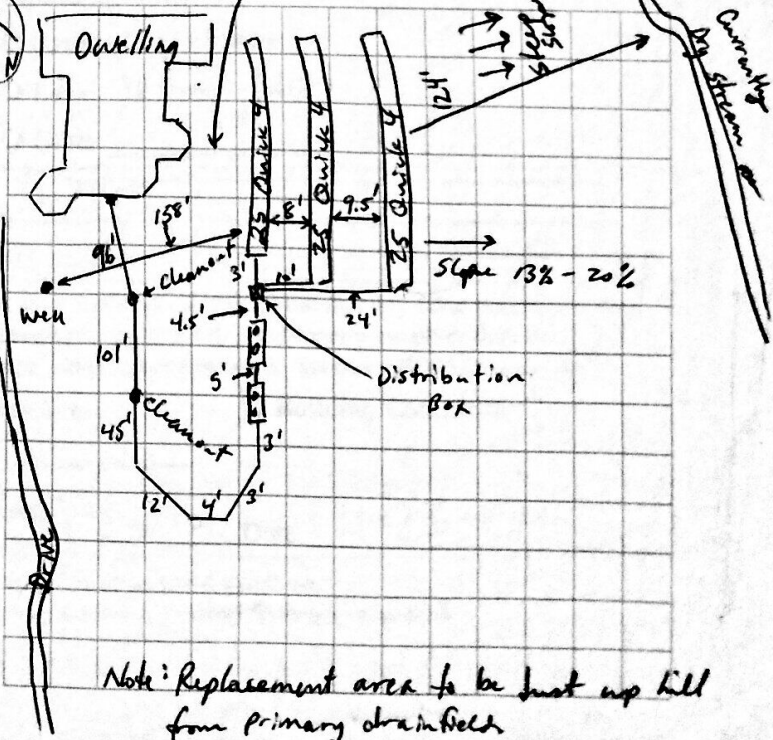 Dwelling
25 Quick 4
25 Quick 4
25 Quick 4
124'
Steep
Currently
Dry stream
8'
9.5'
158'
96'
cleanout
3'
10'
Slope 13% - 20%
Well
4.5'
24'
101'
5'
Distribution
Box
Cleanout
45'
3'
12'
4'
3'
Drive
Note: Replacement area to be just up hill
from primary drainfields